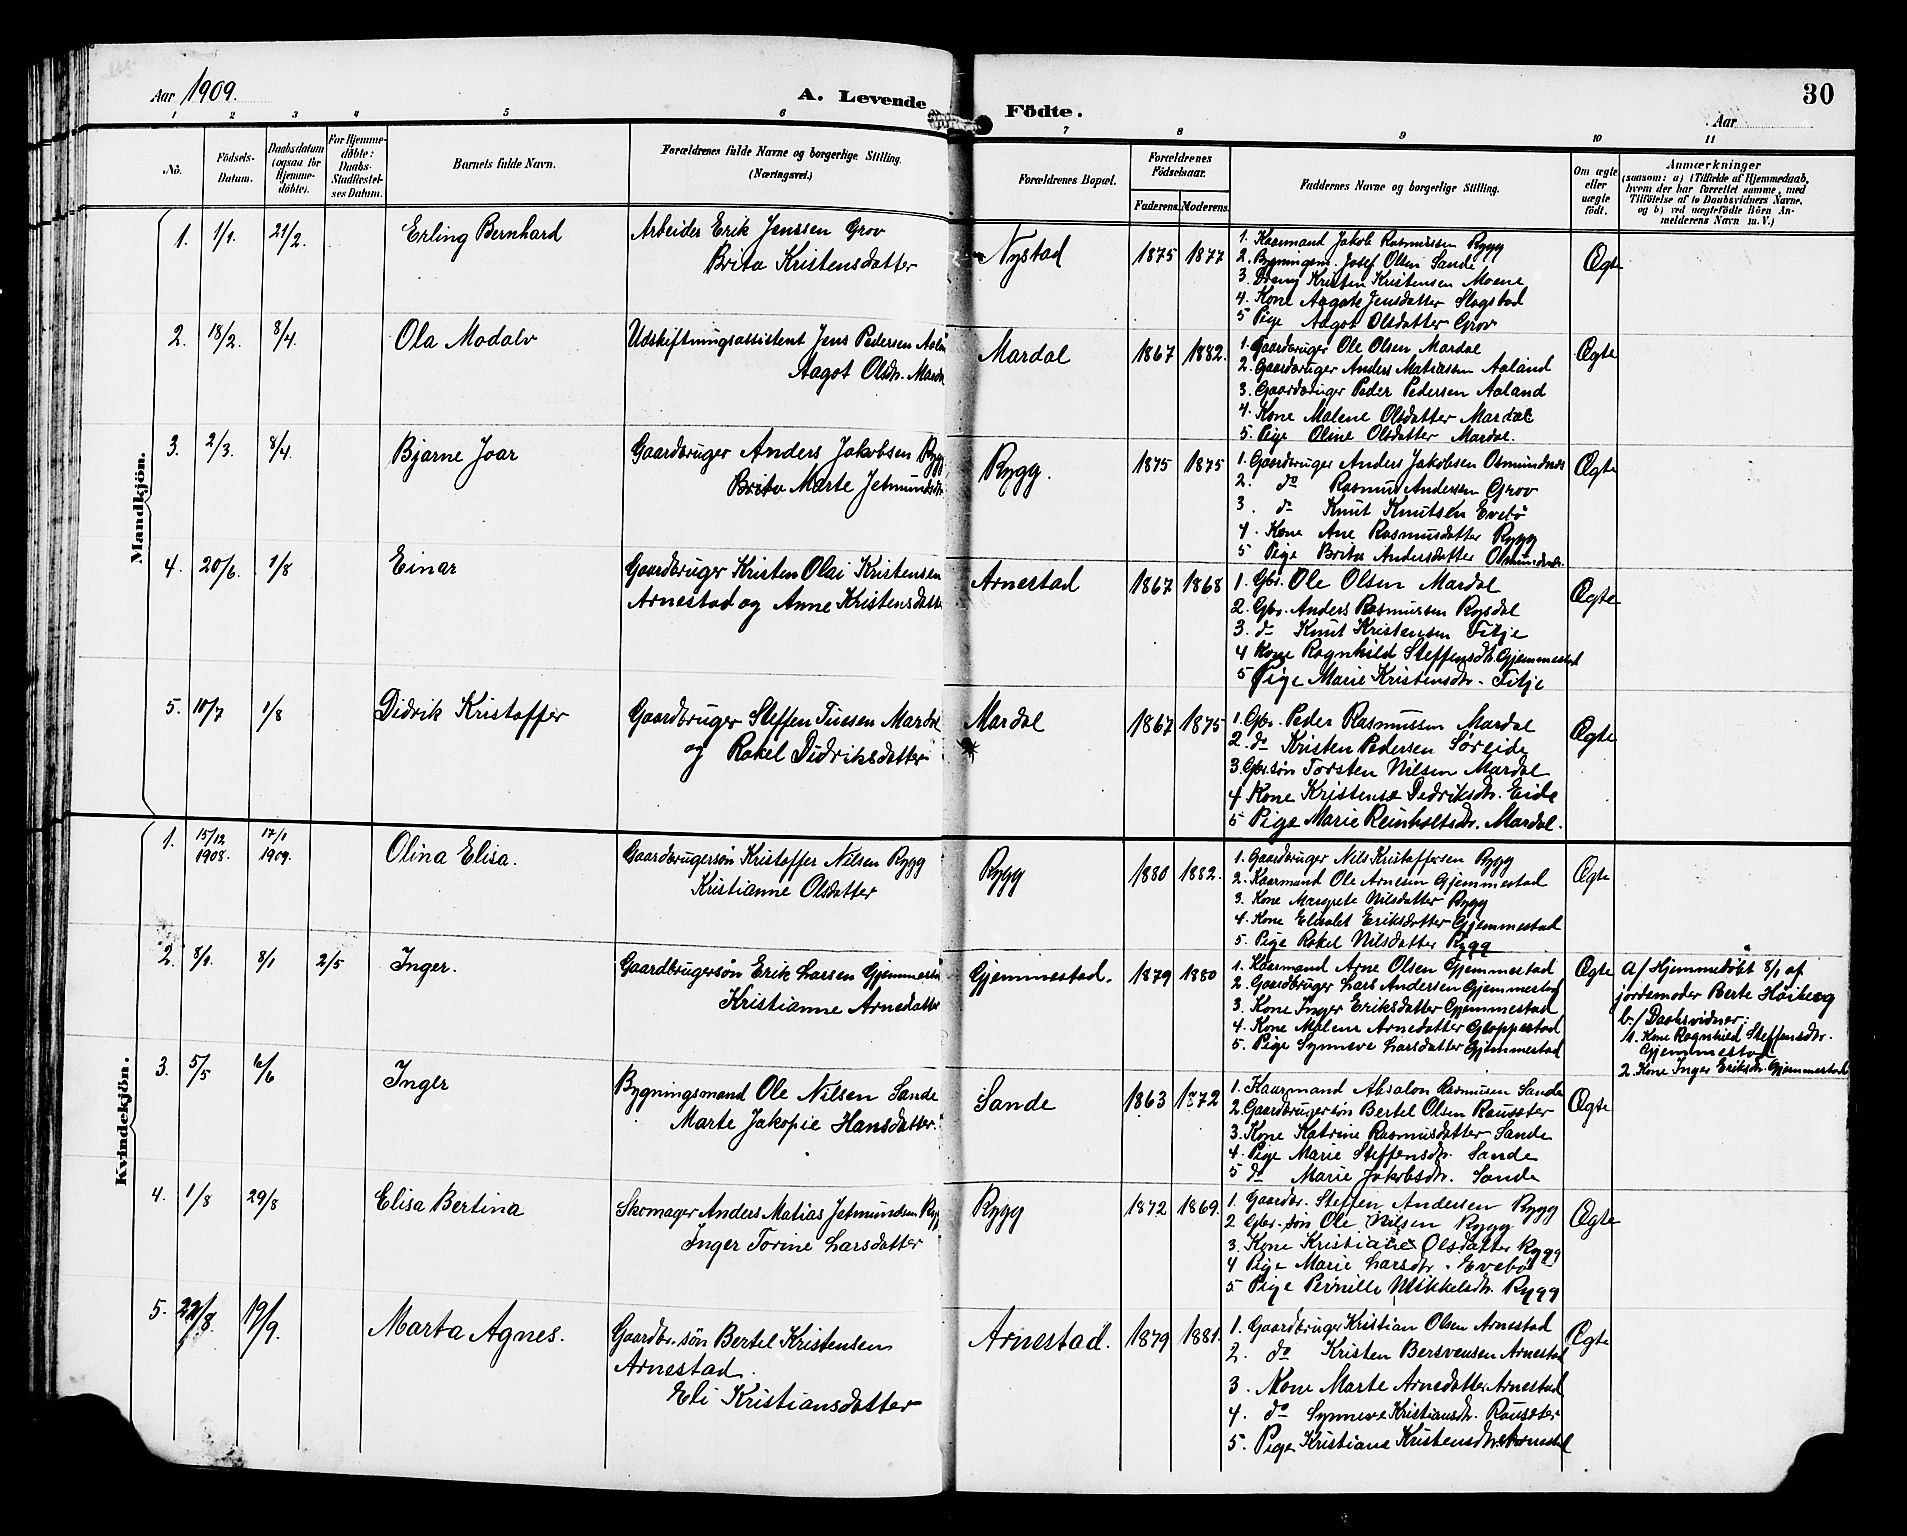 Aar 1909.
A. Levende
Födte.
30
Aar
1 2 3 4 5 6 7 8 9 10 11
No.
Födsels-Datum.
Daabsdatum (ogsaa for Hjemme-döbte).
For Hjemme-döbte: Daabs-Stadfæstel-ses Datum.
Barnets fulde Navn.
Forældrenes fulde Navne og borgerlige Stilling.
(Næringsvei.)
Forældrenes Bopæl.
Forældrenes Födselsaar.
Faderens. Moderens.
Faddernes Navne og borgerlige Stilling.
Om ægte eller uægte födt.
Anmærkninger
(saasom: a) i Tilfælde af Hjemmedaab,
hvem der har forrettet samme, med
Tilföielse af to Daabsvidners Navne,
og b) ved uægtefödte Börn An-
melderens Navn m. V.)
Mandkjön.
1. 1/1. 21/2. Erling Bernhard
Arbeider Erik Jenssen Grov
Brita Kristensdatter
Nystad 1875 1877
1. Kaarmand Jakob Rasmussen Rygg
2. Bygningsm. Josef Olsen Sande
3. Dreng Kristen Kristensen Moene
4. Kone Aagate Jensdatter Slagstad
5 Pige Aagot Olsdatter Grov
Ægte
2. 18/2. 8/4. Ola Modalv
Udskiftningsassistent Jens Pedersen Aalan
Aagot Olsdr. Marda
Mardal 1867 1882.
1. Gaardbruger Ole Olsen Mardal
2. Gaardbruger Anders Matiassen Aaland
3. Gaardbruger Peder Pedersen Aaland
4. Kone Malene Olsdatter Mardal
5. Pige Oline Olsdatter Mardal.
Ægte
3. 2/3. 8/4. Bjarne Joar
Gaardbruger Anders Jakobsen Rygg
Brita Marte Jetmundsdtr.
Rygg. 1875 1875
1. Gaardbruger Anders Jakobsen Osmundnes
2. do Rasmus Andersen Grov
3. do Knut Knutsen Evebö
4. Kone Ane Rasmusdatter Rygg
5 Pige Brita Andersdatter Osmundnes.
Ægte
4. 20/6. 1/8 Einar
Gaardbruger Kristen Olai Kristensen
Arnestad og Anne Kristensdatter
Arnestad 1867 1868
1. Gbr. Ole Olsen Mardal
2. Gbr. Anders Rasmussen Rygdal
3. do Knut Kristensen Fitje
4 Kone Ragnhild Steffensdtr. Gjemmestad
5 Pige Marie Kristensdtr. Fitje
Ægte
5. 10/7 1/8 Didrik Kristoffer
Gaardbruger Steffen Tuesen Mardal
og Rakel Didriksdatter
Mardal 1867 1875
1. Gbr. Peder Rasmussen Mardal
2. do Kristen Pedersen Søreide
3. Gbr.søn Torsten Nilsen Mardal
4 Kone Kristense Didriksdtr. Eide
5 Pige Marie Reinholtsdtr. Mardal.
Ægte
Kvindekjön.
1. 15/12 1908. 17/1 1909. Olina Elisa.
Gaardbrugersön Kristoffer Nilsen Rygg
Kristianne Olsdatter
Rygg 1880 1882.
1. Gaardbruger Nils Kristoffersen Rygg
2. Kaarmand Ole Arnesen Gjemmestad
3. Kone Margrete Nilsdatter Rygg
4. Kone Elisabet Eriksdatter Gjemmestad
5. Pige Rakel Nilsdatter Rygg
Ægte
2. 8/1. 8/1 2/5 Inger.
Gaardbrugersön Erik Larsen Gjemmestad
Kristianne Arnedatter
Gjemmestad. 1879 1880
1. Kaarmand Arne Olsen Gjemmestad
2. Gaardbruger Lars Andersen Gjemmestad
3. Kone Inger Eriksdatter Gjemmestad
4. Kone Malene Arnedatter Gloppestad
5. Pige Synneve Larsdatter Gjemmestad
Ægte
a/ Hjemmedöbt 8/1 af
jordemoder Berte Höiberg
b./ Daabsvidner:
1. Kone Ragnhild Steffensdtr.
Gjemmestad
2. Kone Inger Eriksdtr. Gjemmestad
3. 5/5 6/6 Inger
Bygningsmand Ole Nilsen Sande
Marte Jakopie Hansdatter.
Sande 1863 1872
1. Kaarmand Absalon Rasmusen Sande
2. Gaardbrugersøn Bertel Olsen Rausæter
3. Kone Katrine Rasmusdatter Sande
4. Pige Marie Steffensdtr. Sande
5 do Marie Jakobsdtr. Sande
Ægte
4. 1/8 29/8 Elisa Bertina
Skomager Anders Matias Jetmundsen Rygg
Inger Torine Larsdatter
Rygg 1872 1869.
1. Gaardbr. Steffen Andersen Rygg
2 Gbr.-søn Ole Nilsen Rygg
3. Kone Kristiane Olsdatter Rygg
4 Pige Marie Larsdtr. Evebö
5 Pige Pernille Mikkelsdtr. Rygg
Ægte
5. 22/8. 19/9. Marta Agnes.
Gaardbr.søn Bertel Kristensen
Arnestad.
Eli Kristiansdatter
Arnestad. 1879 1881.
1. Gaardbruger Kristian Olsen Arnestad
2. do Kristen Bersvensen Arnestad
3. Kone Marte Arnedatter Arnestad
4. do Synneve Kristiansdtr. Rausæter
5. Pige Kristiane Kristensdtr. Arnestad
Ægte